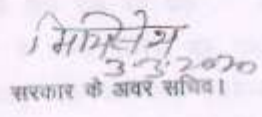 3.3.2020
सरकार के अवर सचिव।